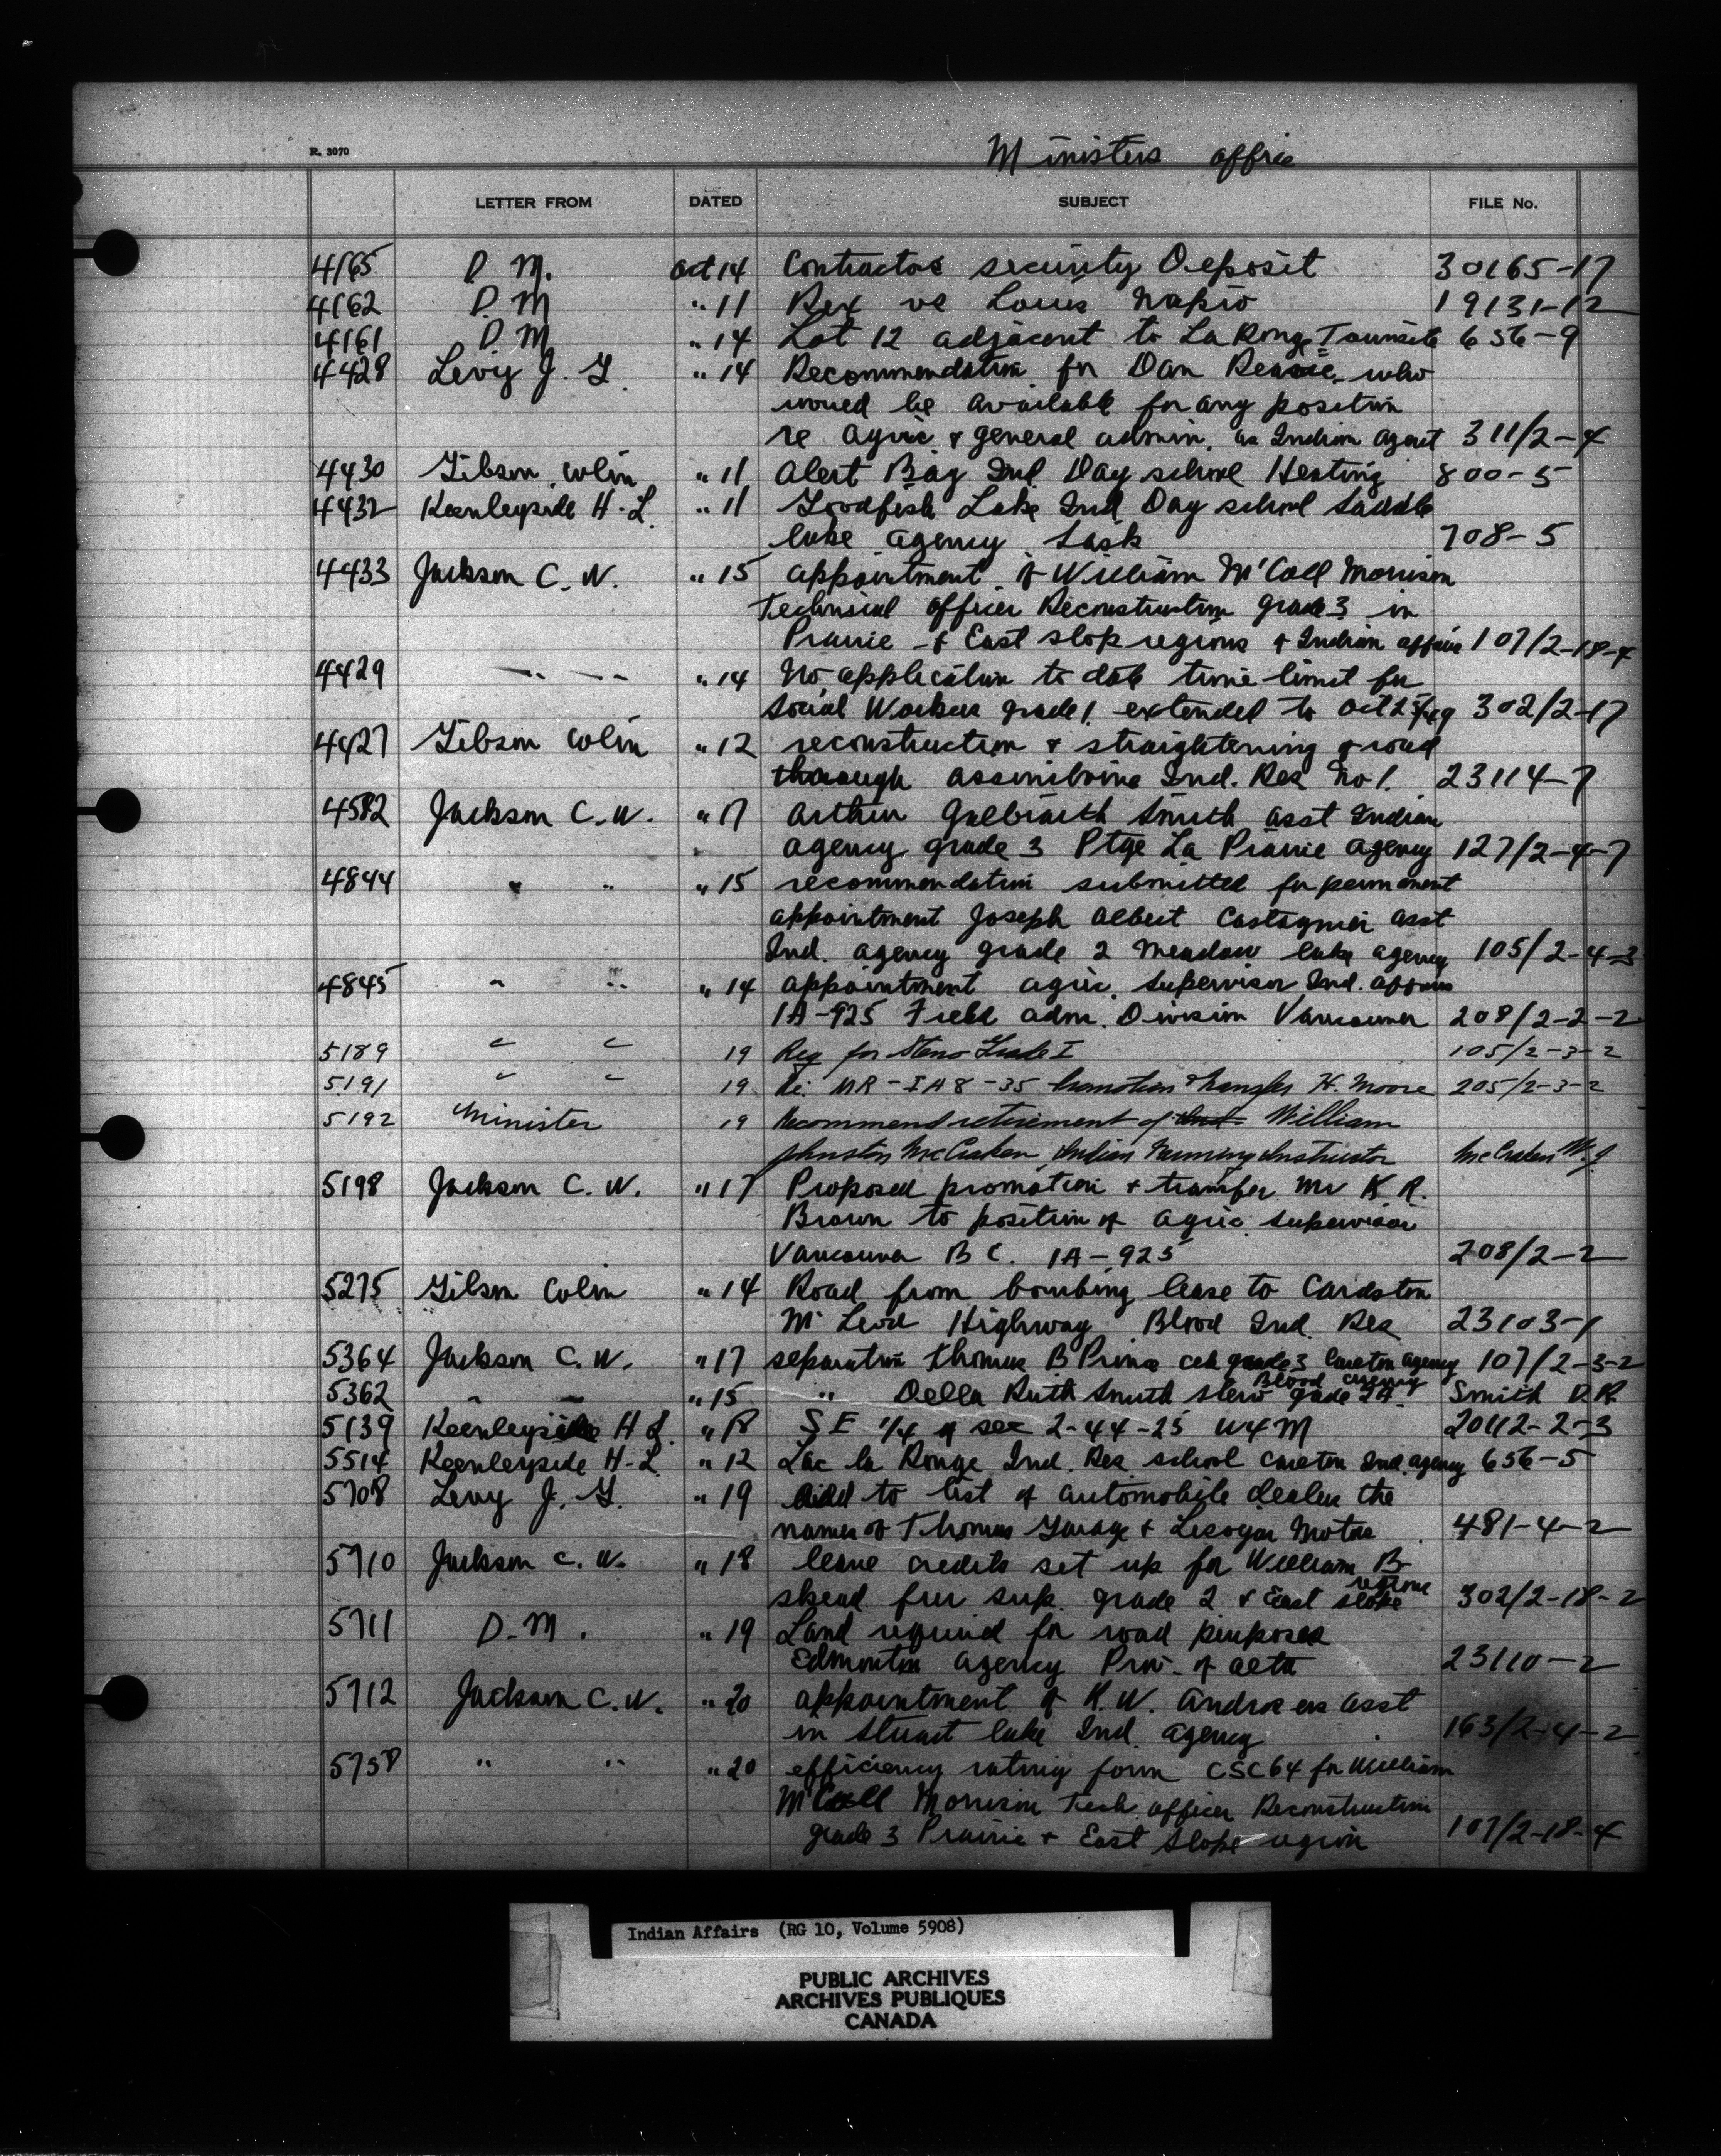 R. 3070
Ministers office
LETTER FROM DATED SUBJECT FILE No.
4165 D. M. Oct 14 Contractors security Deposit 30165-17
4162 D. M " 11 Rex vs Louis Napio 19131-12
4161 D M " 14 Lot 12 adjacent to La Ronge Townsite 656-9
4428 Levy J. G. " 14 Recommendation for Dan who
would be available for any position
re agric & general admin. as Indian Agent 311/2-4
4430 Gibson, Colin " 11 Alert Bay Ind. Day school Heating 800-5
4432 Keenleyside H-L " 11 Goodfish Lake Ind Day school Saddle
lake agency Sask 708-5
4433 Jackson C. W. " 15 appointment of William McCall Morrison
Technical officer Reconstruction grade 3 in
Prairie & East slope regions & Indian affairs 107/2-18-4
4429 " " " 14 No application to date time limit for
Social Worker grade 1 extended to Oct 25/49 302/2-17
4427 Gibson Colin " 12 reconstruction & straightening of road
through Assiniboine Ind. Res No 1. 23114-7
4582 Jackson C. W. " 17 Arthur Galbraith Smith asst Indian
agency grade 3 Ptge La Prairie agency 127/2-4-7
4844 " " " 15 recommendation submitted for permanent
appointment Joseph Albert Castagner asst
Ind. agency grade 2 Meadow lake agency 105/2-4-3
4845 " " " 14 appointment agric. supervisor Ind. affairs
IA-925 Field adm. Division Vancouver 208/2-2-2
5189 " " 19 Req for Steno Grade I 105/2-3-2
5191 " " 19 Re: MR-IA8-35 Promotion & transfer H. Moore 205/2-3-2
5192 Minister 19 Recommend retirement of William
Johnston McCraken, Indian Farming Instructor McCraken W. J
5198 Jackson C. W. " 17 Proposed promotion & transfer Mr K R.
Brown to position of agric supervisor
Vancouver B C. IA-925 208/2-2
5275 Gibson Colin " 14 Road from bombing lease to Cardston
McLeod Highway Blood Ind. Res 23103-1
5364 Jackson C. W. " 17 separation Thomas B Prince clk grade 3 Carlton agency 107/2-3-2
5362 " " " 15 " Della Ruth Smith steno grade 2A. Blood agency Smith D. R.
5139 Keenleyside H L. " 18 S E 1/4 of sec 2-44-25 W4M 20112-2-3
5514 Keenleyside H-L " 12 Lac la Ronge Ind. Res school Carlton Ind. agency 656-5
5708 Levy J. G. " 19 add to list of automobile dealers the
names of Thomas Garage & Motors 481-4-2
5710 Jackson C. W. " 18 leave credits set up for William B
Skead fur sup. grade 2 & East slope regions 302/2-18-2
5711 D. M. " 19 Land required for road purposes
Edmonton agency Prov. of Alta 23110-2
5712 Jackson C. W. " 20 appointment of K. W. Andrews asst
in Stuart lake Ind. agency 163/2-4-2
5758 " " " 20 efficiency rating form CSC64 for William
McCall Morrison Tech officer Reconstruction
grade 3 Prairie & East Slope region 107/2-18-4
Indian Affairs (RG 10, Volume 5908)
PUBLIC ARCHIVES
ARCHIVES PUBLIQUES
CANADA